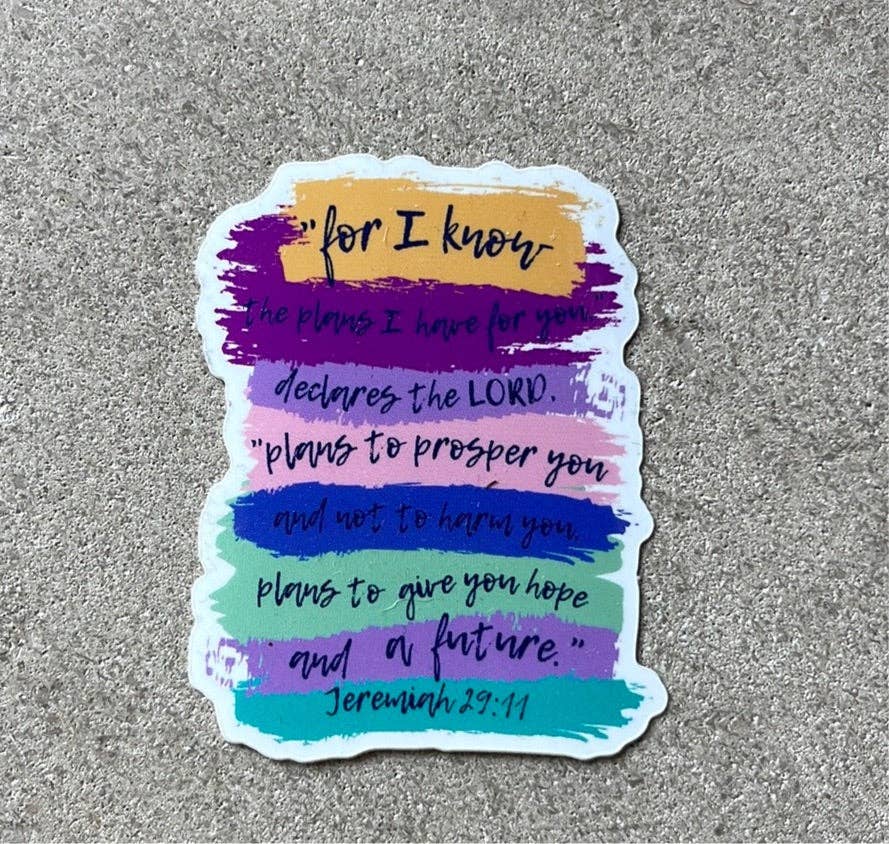 "for I know
the plans I have for you,"
declares the LORD.
"plans to prosper you
and not to harm you,
plans to give you hope
and a future."
Jeremiah 29:11